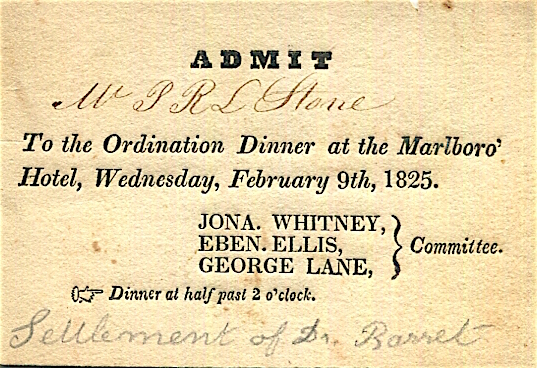 ADMIT
Mr P R L Stone
To the Ordination Dinner at the Marlboro'
Hotel, Wednesday, February 9th, 1825.
JONA. WHITNEY,
EBEN. ELLIS,
GEORGE LANE,
} Committee.
☞ Dinner at half past 2 o'clock.
Settlement of Dr. Barret